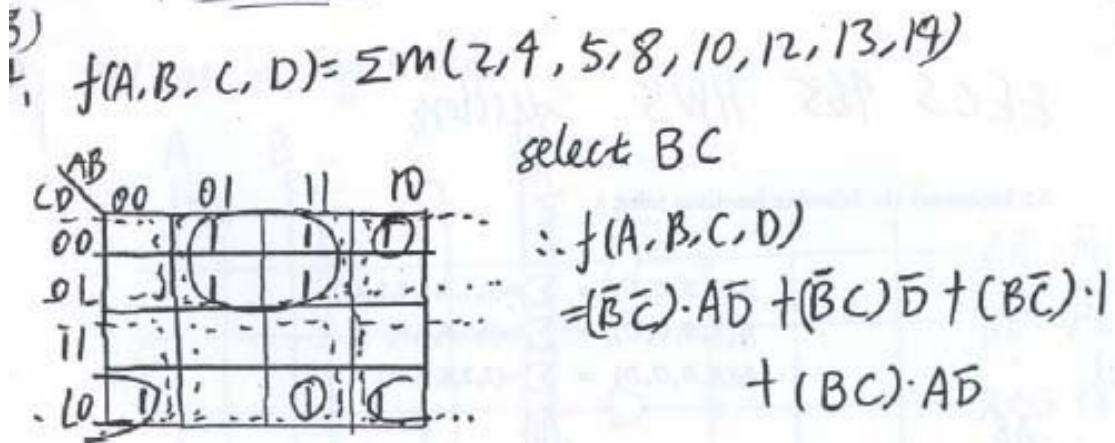 3)
f(A,B,C,D)=Σm(2,4,5,8,10,12,13,14)
select BC
AB
CD 00 01 11 10
00 1 1 1
01 1 1
11
10 1 1 1
∴f(A,B,C,D)
=(B̄C̄)·AD̄+(B̄C)D̄+(BC̄)·1
+(BC)·AD̄